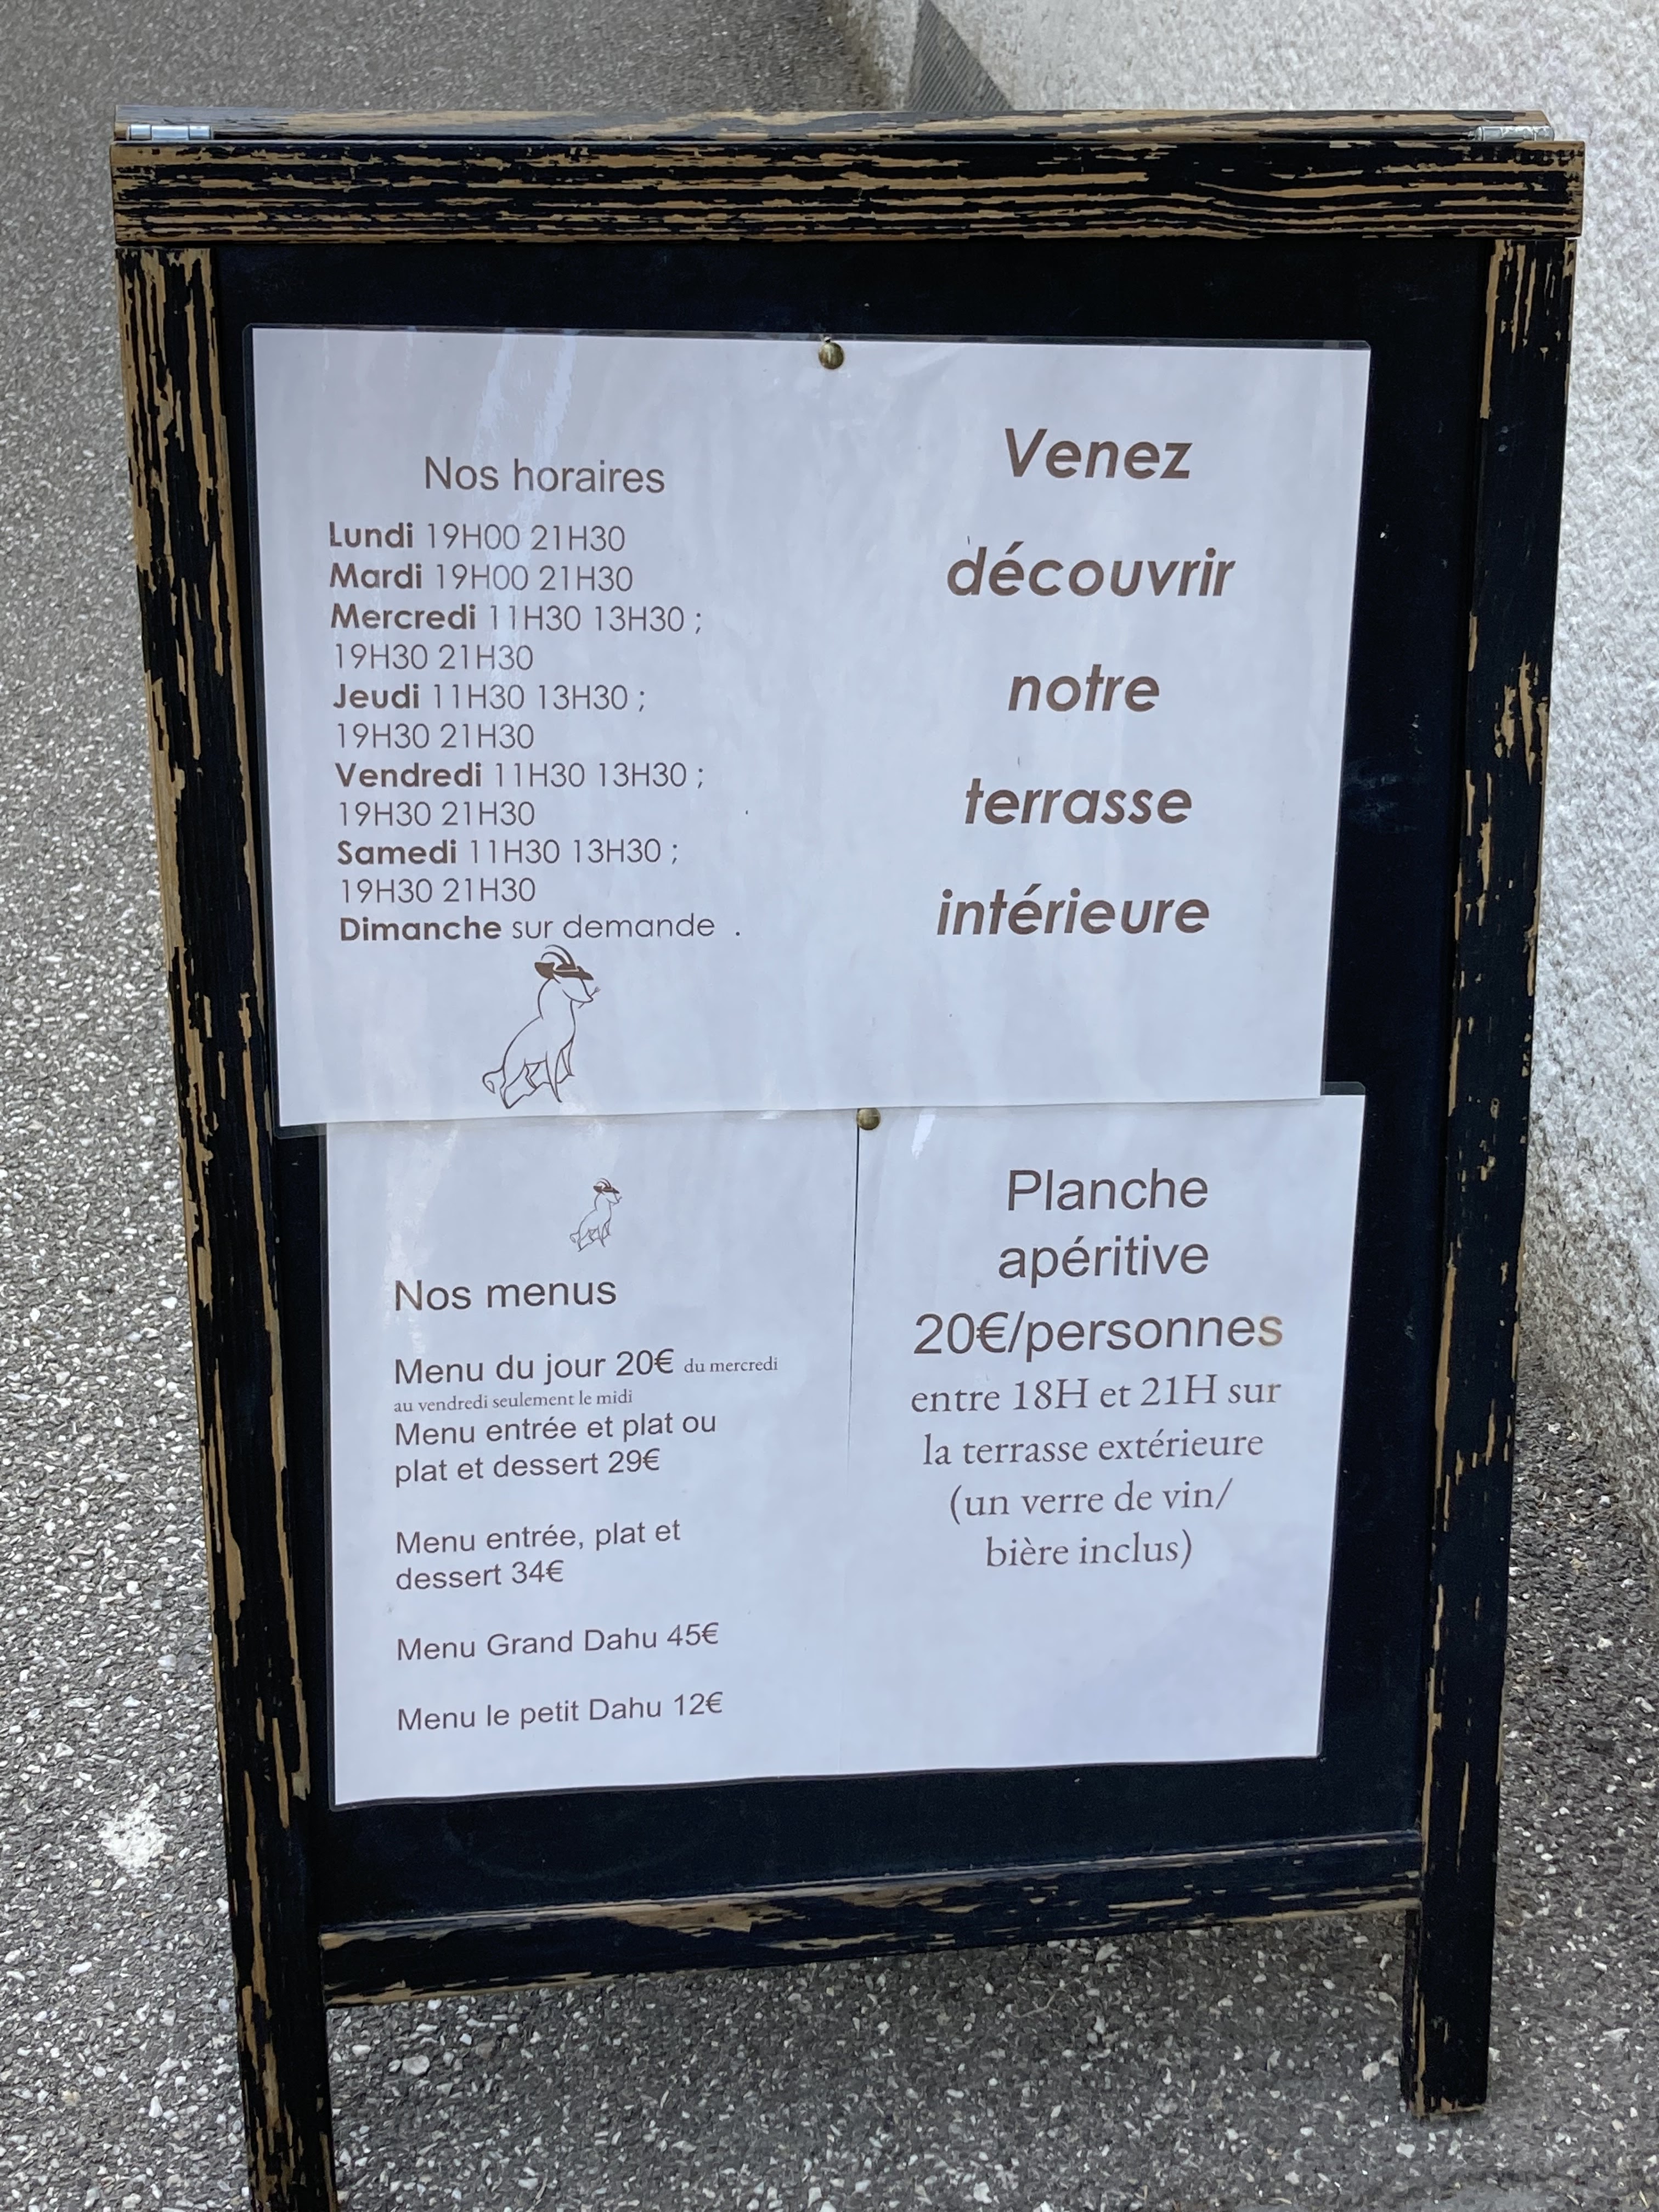 Nos horaires
Lundi 19H00 21H30
Mardi 19H00 21H30
Mercredi 11H30 13H30 ;
19H30 21H30
Jeudi 11H30 13H30 ;
19H30 21H30
Vendredi 11H30 13H30 ;
19H30 21H30
Samedi 11H30 13H30 ;
19H30 21H30
Dimanche sur demande .
Venez
découvrir
notre
terrasse
intérieure
Nos menus
Menu du jour 20€ du mercredi
au vendredi seulement le midi
Menu entrée et plat ou
plat et dessert 29€
Menu entrée, plat et
dessert 34€
Menu Grand Dahu 45€
Menu le petit Dahu 12€
Planche
apéritive
20€/personnes
entre 18H et 21H sur
la terrasse extérieure
(un verre de vin/
bière inclus)